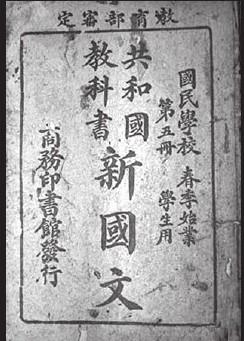 教育部審定
國民學校 春季始業
第五冊 學生用
共和國
教科書
新國文
商務印書館發行